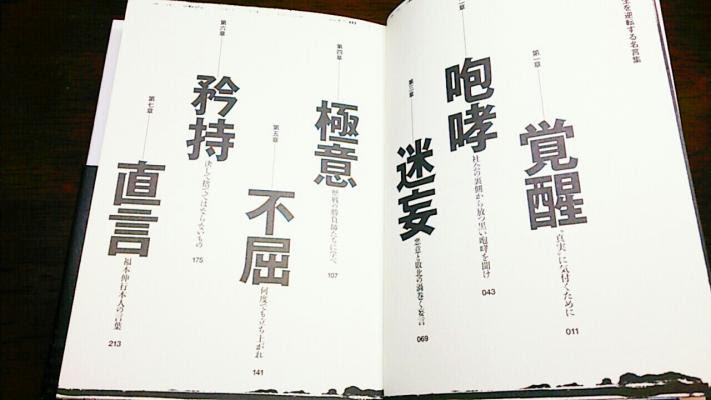 生を逆転する名言集
第一章
覚醒
“真実”に気付くために
011
二章
咆哮
社会の裏側から放つ黒い咆哮を聞け
043
第三章
迷妄
悲意と敗北の渦巻く妄言
069
第四章
極意
歴戦の勝負師たちに学べ
107
第五章
不屈
何度でも立ち上がれ
141
第六章
矜持
決して捨ててはならないもの
175
第七章
直言
福本伸行本人の言葉
213